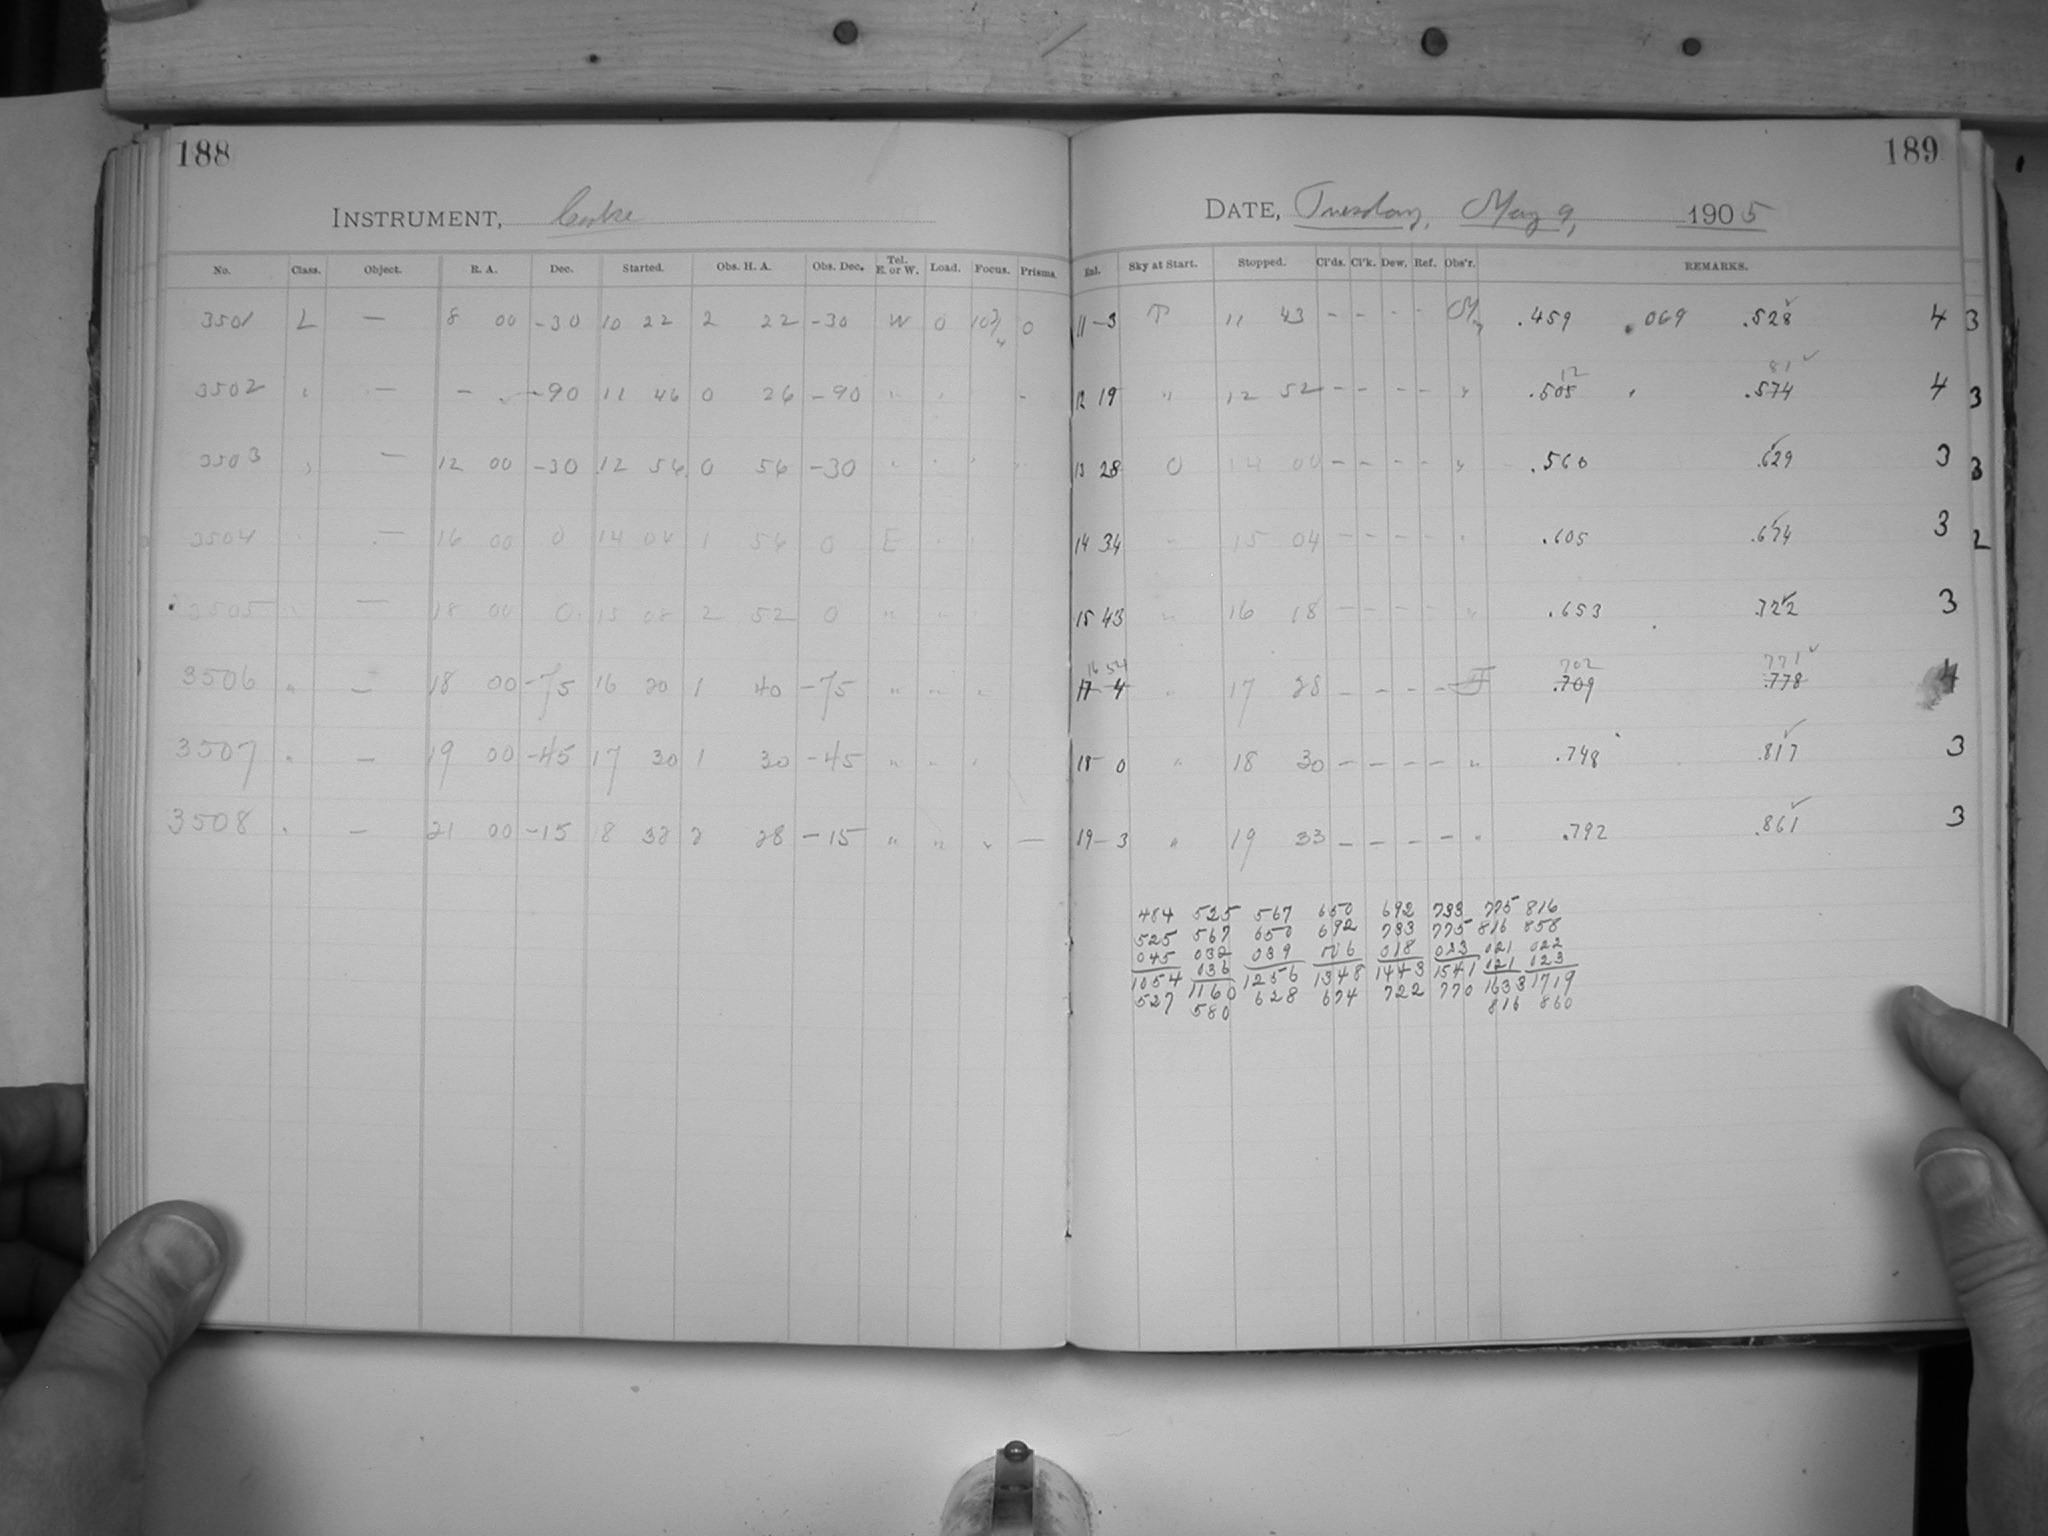 188
INSTRUMENT, Cooke
No. Class. Object. R. A. Dec. Started. Obs. H. A. Obs. Dec. Tel. E. or W. Load. Focus. Prisms.
3501 L — 8 00 -30 10 22 2 22 -30 W 0 10 3/4 0
3502 " — — -90 11 46 0 26 -90 " " -
3503 " — 12 00 -30 12 56 0 56 -30 " " "
3504 " — 16 00 0 14 04 1 56 0 E " "
3505 " — 18 00 0 15 08 2 52 0 " " "
3506 " — 18 00 -75 16 20 1 40 -75 " " "
3507 " — 19 00 -45 17 30 1 30 -45 " " "
3508 " — 21 00 -15 18 32 2 28 -15 " " " —
189
DATE, Tuesday, May 9, 1905
Sky at Start. Stopped. Cl'ds. Cl'k. Dew. Ref. Obs'r. REMARKS.
11-3 11 43 - - - - .459 .069 .528 ✓ 4 3
12 81 ✓
12 19 " 12 52 - - - - " .505 .574 4 3
13 28 0 14 00 - - - - " .560 .629 ✓ 3 3
14 34 " 15 04 - - - - " .605 .674 ✓ 3 2
15 43 " 16 18 - - - - " .653 .722 ✓ 3
16 54 702 771 ✓
17-4 " 17 28 - - - - .709 .778 4
18-0 " 18 30 - - - - " .748 .817 ✓ 3
19-3 " 19 33 - - - - " .792 .861 ✓ 3
484 525 567 650 692 733 775 816
525 567 650 692 733 775 816 858
045 032 039 006 018 033 021 022
036 021 023
1054 1160 1256 1348 1443 1541 1633 1719
527 580 628 674 722 770 816 860